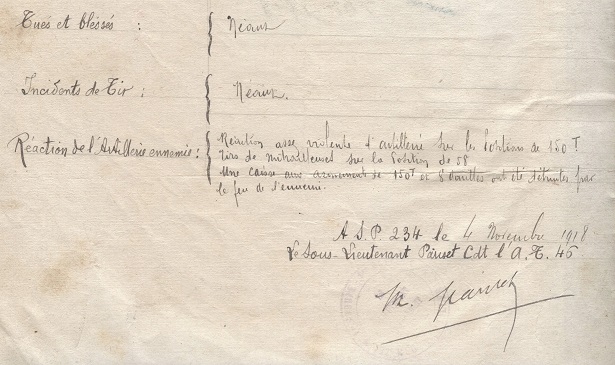 Tués et blessés : Néant
Incidents de Tir : Néant.
Réaction de l'Artillerie ennemie : Réaction assez violente d'artillerie sur les Positions de 150 T
Tirs de mitrailleuses sur la Position de 58
Une caisse aux armement de 150T et 8 douilles ont été détruites par
le feu de l'ennemi.
A S.P. 234 le 4 Novembre 1918
Le Sous-Lieutenant Pariset Cdt l'A.T. 45
M. Pariset